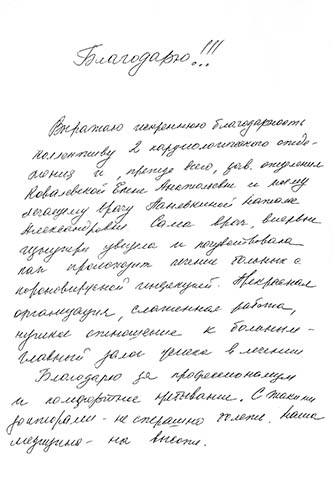 Благодарю!!!
Выражаю искреннюю благодарность
коллективу 2 кардиологического отде-
ления и, прежде всего, зав. отделения
Ковалевской Елене Анатольевне и моему
лечащему врачу Наталье
Александровне. Сама врач, впервые
изнутри увидела и почувствовала
как происходит лечение больных с
короновирусной инфекцией. Прекрасная
организация, слаженная работа,
чуткое отношение к больным -
главный залог успеха в лечении
Благодарю за профессионализм
и комфортное пребывание. С такими
докторами - не страшно болеть. Наша
медицина - на высоте.